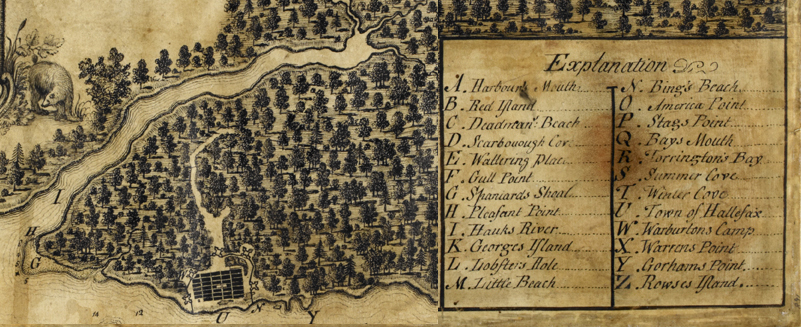 I
H
G
U
X
Y
12
Explanation
A. Harbour's Mouth
B. Red Island
C. Deadman's Beach
D. Scarborough Cov.
E. Wattering Place
F. Gull Point
G. Spaniards Shoal
H. Pleasant Point
I. Hauks River
K. Georges Island
L. Lobsters Hole
M. Little Beach
N. Bing's Beach
O. America Point
P. Stags Point
Q. Bays Mouth
R. Torrington's Bay
S. Summer Cove
T. Winter Cove
U. Town of Hallefax
W. Warburtons Camp
X. Warrens Point
Y. Gorhams Point
Z. Rowses Island